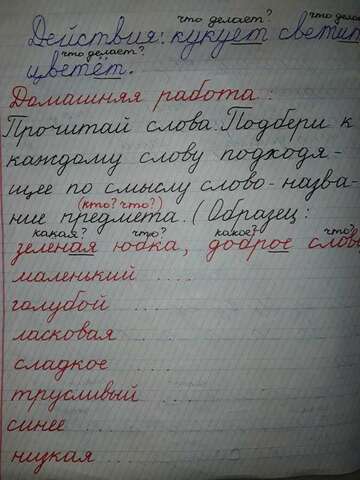 что делает? что делает?
Действия: кукует светит
что делает?
цветёт.
Домашняя работа:
Прочитай слова. Подбери к
каждому слову подходя-
щее по смыслу слово-назва-
(кто? что?)
ние предмета. (Образец:
какая? что? какое? что?
зеленая юбка, доброе слово
маленький ....
голубой ....
ласковая ....
сладкое ....
трусливый ....
синее ....
низкая ....